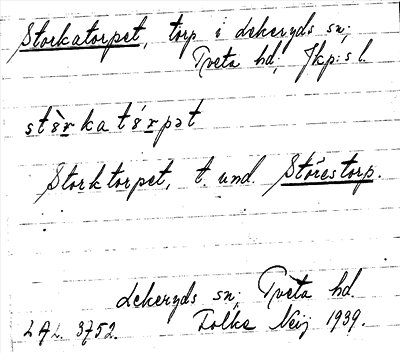 Storkatorpet, torp i Lekeryds sn;
Tveta hd; Jkp:s l.
stò̀rkatórpət
Storktorpet, t. und. Störestorp.
Lekeryds sn; Tveta hd.
LAL 3752. Folke Neij 1939.